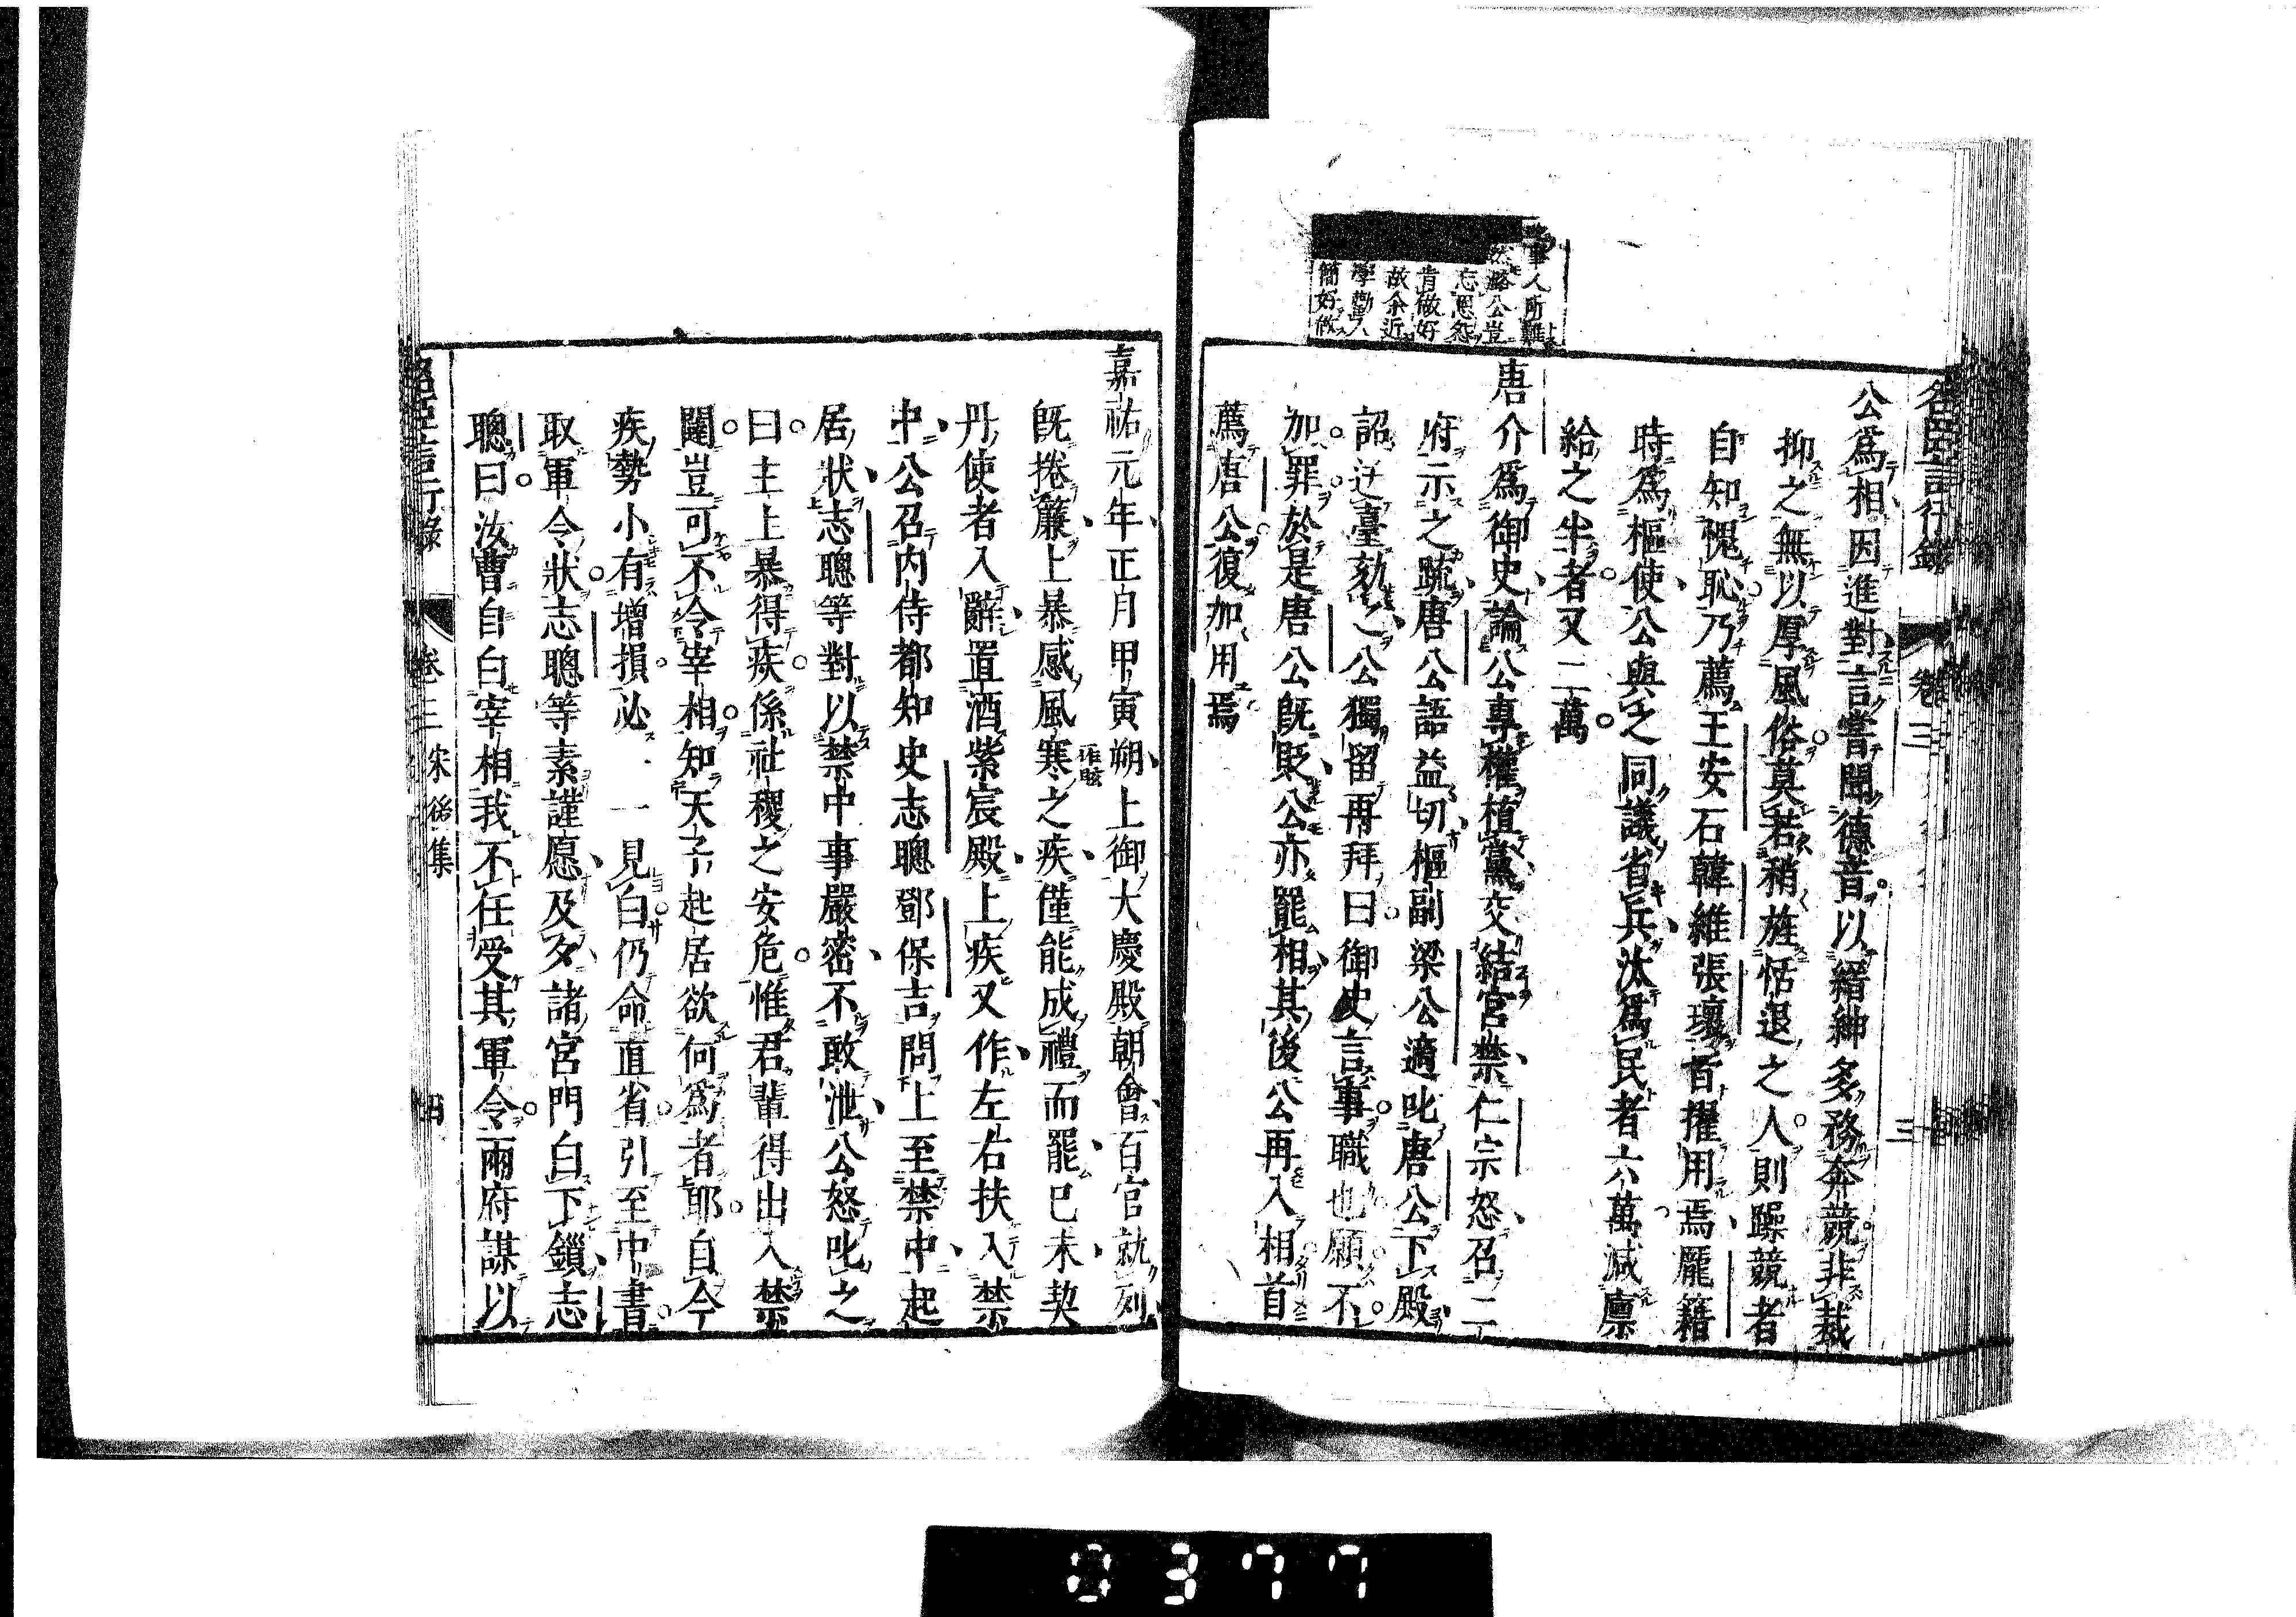 名臣言行錄 卷三 三
公爲相因進對言嘗聞德音以縉紳多務奔競非裁
抑之無以厚風俗莫若稍旌恬退之人則躁競者
自知愧恥乃薦王安石韓維張瓌皆擢用焉龐籍
時爲樞使公與之同議省兵汰爲民者六萬減廪
給之半者又二萬
事人所難
然潞公豈
忘恩怨
肯做好
故余近
學勸人
簡好做
唐介爲御史論公專權植黨交結宮禁仁宗怒召二
府示之疏唐公語益切樞副梁公適叱唐公下殿
詔送臺劾之公獨留再拜曰御史言事職也願不
加罪於是唐公旣貶公亦罷相其後公再入相首
薦唐公復加用焉
嘉祐元年正月甲寅朔上御大慶殿朝會百官就列
旣捲簾上暴感風寒之疾僅能成禮而罷已未契
丹使者入辭置酒紫宸殿上疾又作左右扶入禁
中公召內侍都知史志聰鄧保吉問上至禁中起
居狀志聰等對以禁中事嚴密不敢泄公怒叱之
曰主上暴得疾係社稷之安危惟君輩得出入禁
闥豈可不令宰相知天子起居欲何爲者耶自今
疾勢小有增損必一見白仍命直省引至中書
取軍令狀志聰等素謹愿及夕諸宮門白下鎻志
聰曰汝曹自白宰相我不任受其軍令兩府謀以
名臣言行錄 卷三 宋後集 四
0377